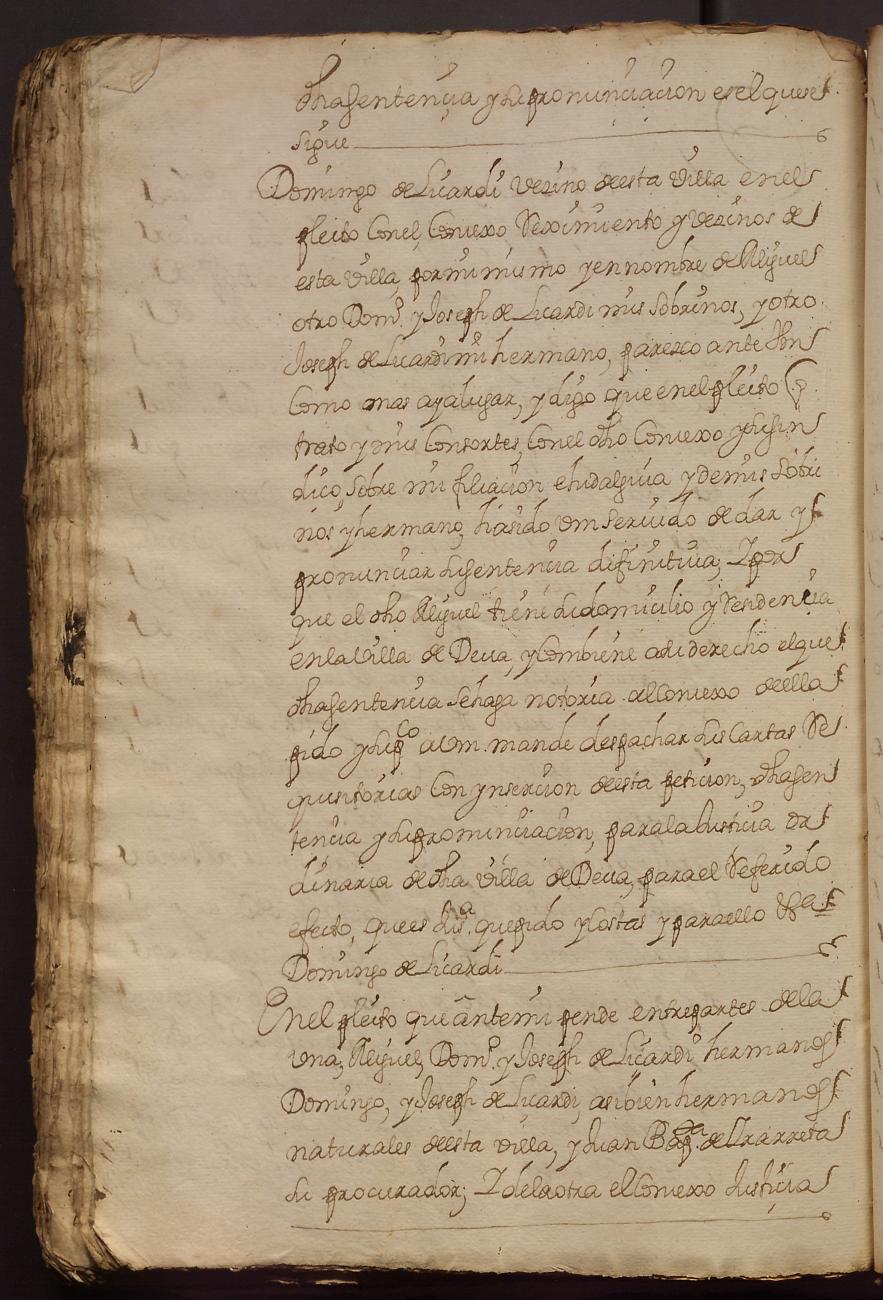 dha sentençia y su pronunciacion es el que se
sigue
Domingo de Licardi Vezino de esta Villa en el
pleito Con el, Conexo Reximiento y Vezinos de
esta Villa, por mi mismo y en nombre de Miguel
otro Domº. y Joseph de Licardi mis Sobrinos, y otro
Joseph de Licardi mi hermano, paresco ante Vm
Como mas aya lugar, y digo que en el pleito q
trato y mis Consortes, Con el dho Conexo y su sin
dico, Sobre mi filiacion e hidalguia y de mis Sobri
nos y hermano, ha sido Vm Servido de dar y
pronunciar su sentencia difinitiva, Y por
que el dho Miguel tiene su domicilio y Residencia
en la Villa de Deva, y Combiene a su derecho el que
dha sentencia se haga notoria al Conexo de ella
pido y supco a Vm. mande despachar sus Cartas Re
quisitorias Con ynsercion de esta peticion, dha sen
tencia y su pronunciacion, para la Justicia or
dinaria de dha Villa de Deva, para el Referido
efecto, que es Jusa. que pido y Costas y para ello &a.
Domingo de Licardi
En el pleito que ante mi pende entre partes de la
una, Miguel, Domº. y Joseph de Licardi hermanos
Domingo, y Joseph de Licardi, asi bien hermanos
naturales de esta Villa, y Juan Bapta. de Yrarreta
su procurador; Y de la otra el Conexo Justicia